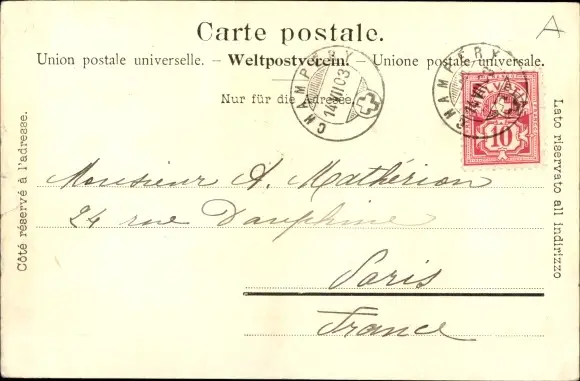 Carte postale.
A
Union postale universelle. – Weltpostverein. – Unione postale universale.
Nur für die Adresse.
CHAMPÉRY
14.VII.03
CHAMPÉRY
14.VII
10
Côté réservé à l'adresse.
Lato riservato all indirizzo
Monsieur A. Mathérion
24 rue Dauphine
Paris
France